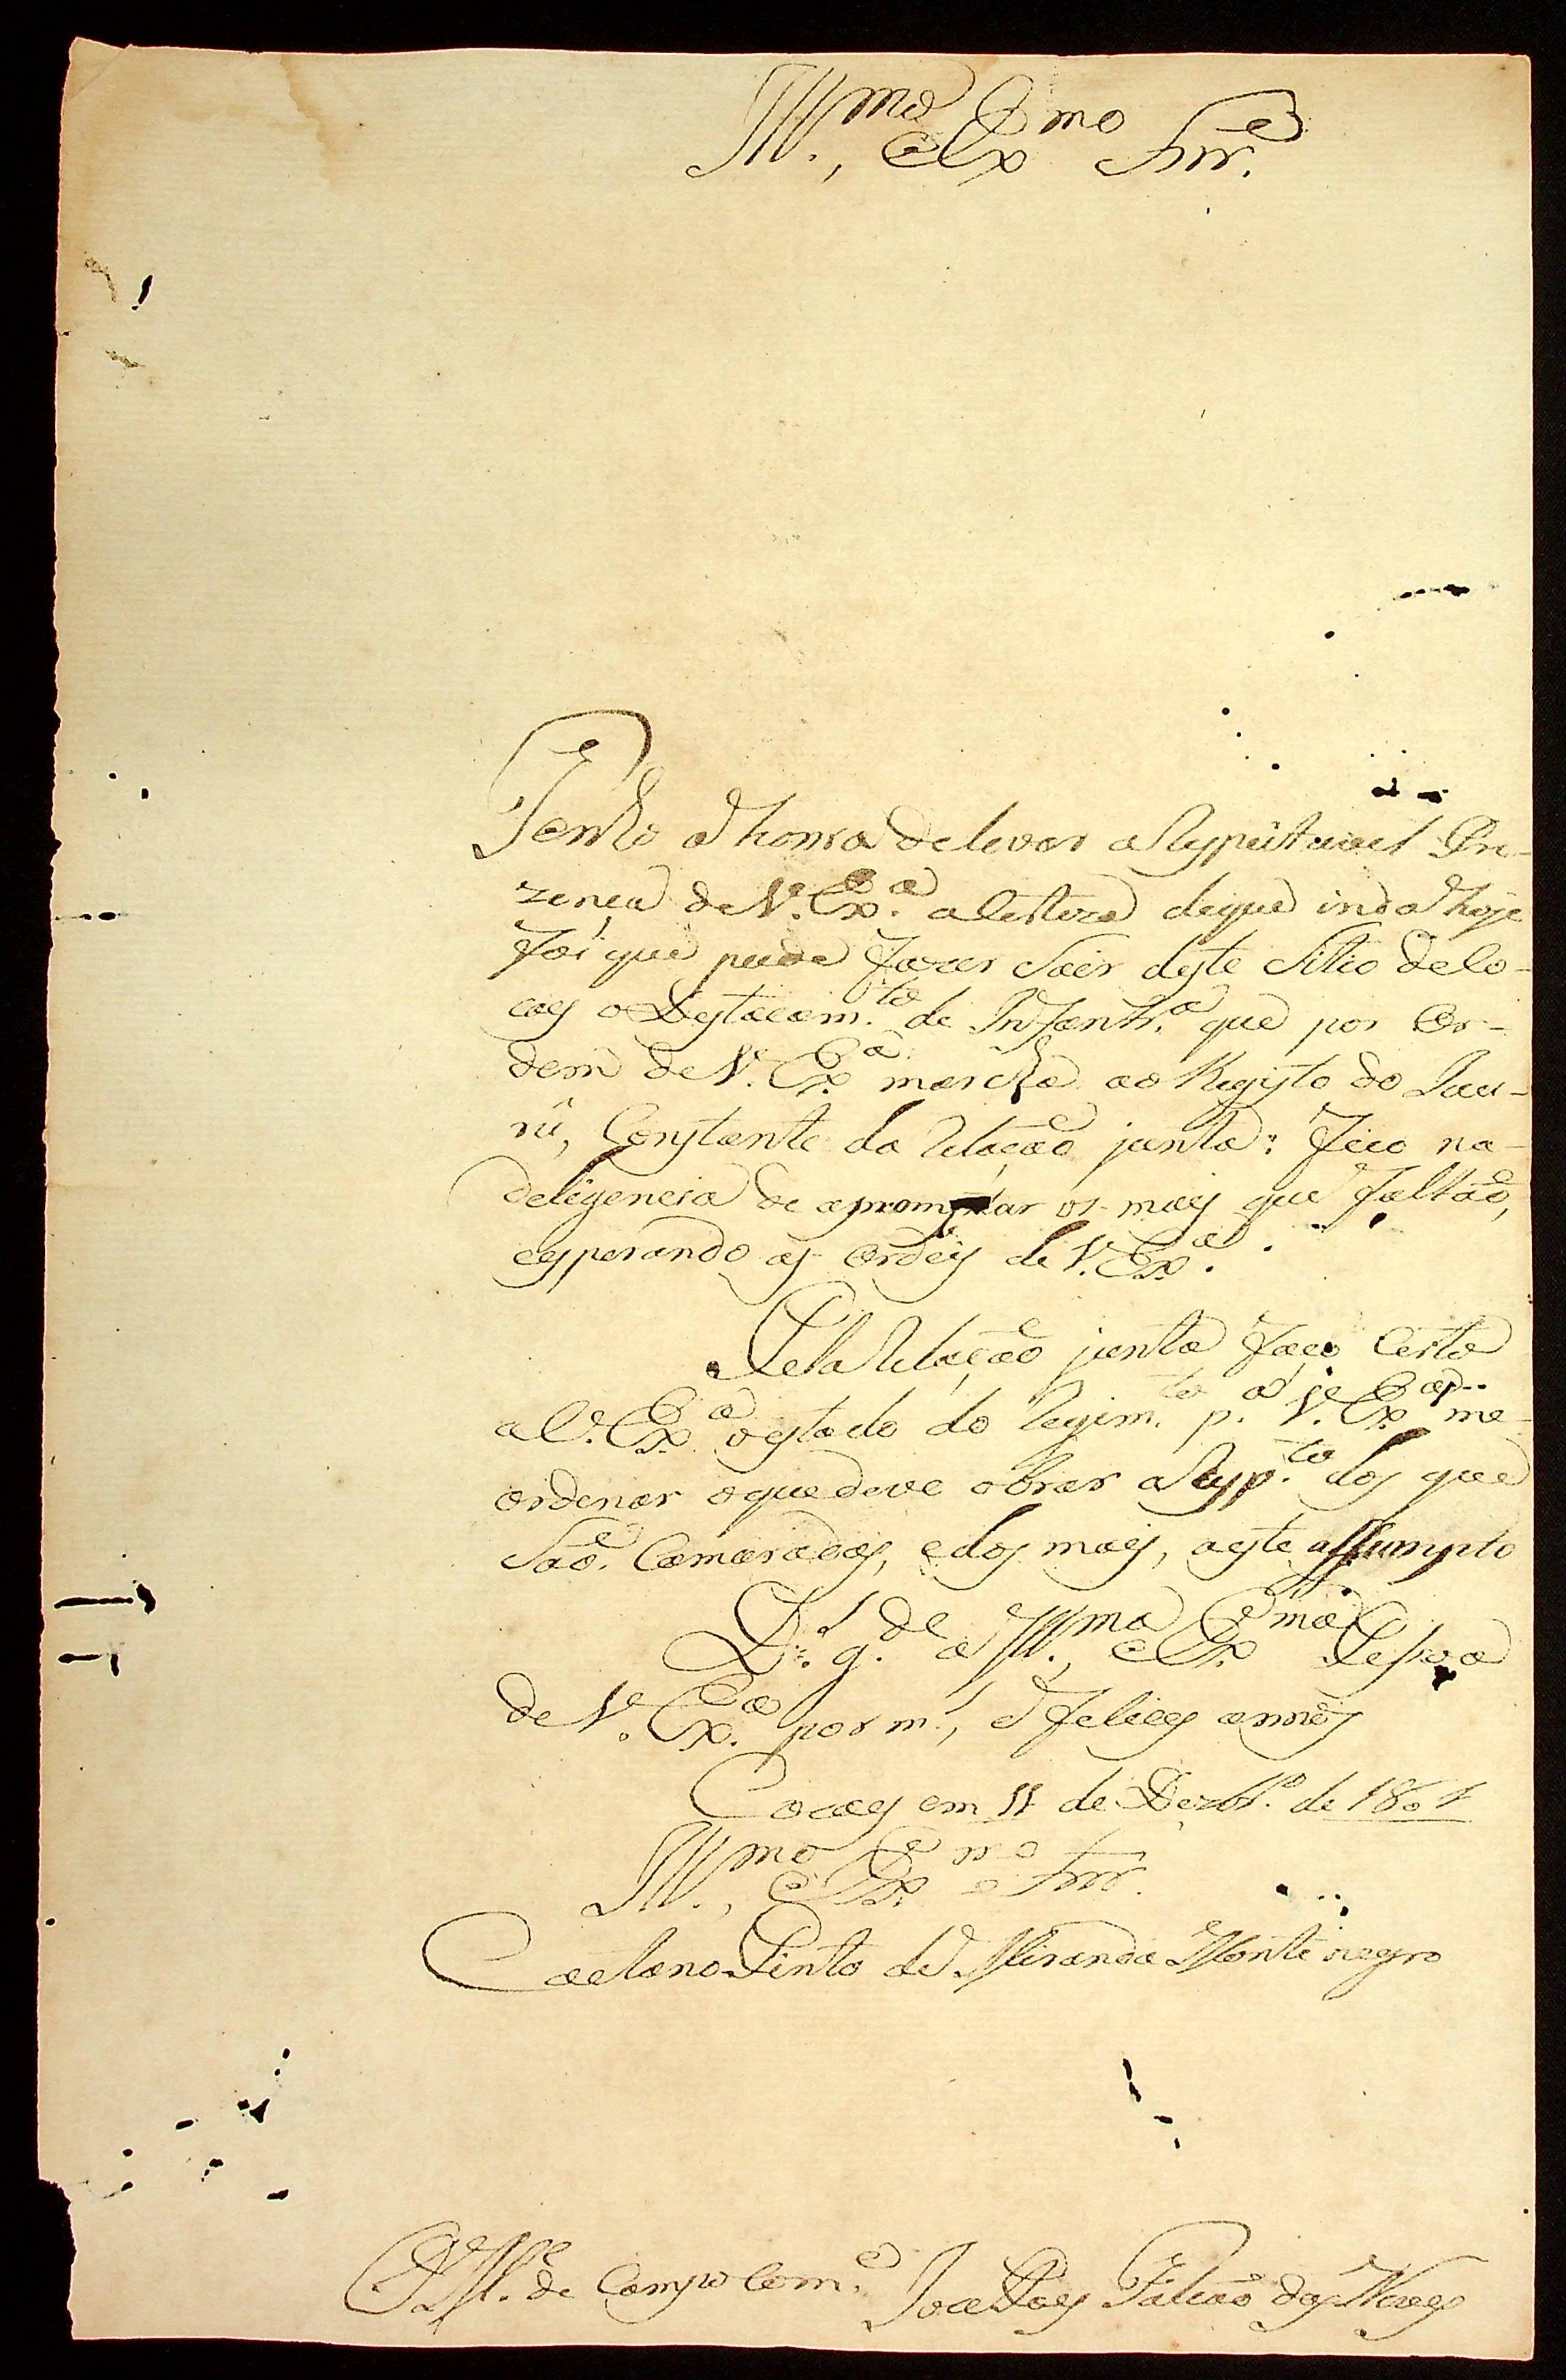 Ill.mo, e Ex.mo Snr.
Tenho a honra de levar a Respeitavel Pre-
zença de V. Ex.a a certeza de que inda hoje
foi que pude fazer Sair deste Sitio de Co-
caes o Destacam.to de Infantr.a que por Or-
dem de V. Ex.a marcha ao Registo do Jau-
rú, Constante da relação junta: Fico na
deligencia de apromptar os mais que faltão,
esperando as Ordeñs de V. Ex.a.
Pela relação junta faço Certo
a V. Ex.a o estado do regim.to p.a V. Ex.a me
ordenar o que devo obrar a Resp.to dos que
São Camaradas, e dos mais, a este assumpto
D.s g.de a Ill.ma, e Ex.ma Pessoa
de V. Ex.a por m.s, e felices annos
Cocaes em 11 de Dezbr.o de 1801
Ill.mo, e Ex.mo Snr.
Caetano Pinto de Miranda Monte negro
O M.e de Campo Com.e Joze Paes Falcão das Neves